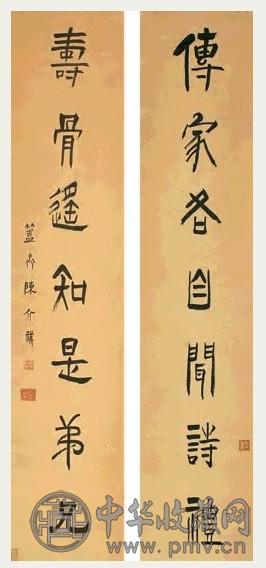 傳家各自聞詩禮
壽骨遥知是弟兄
簠齋陳介祺
中华收藏网
www.pmv.cn